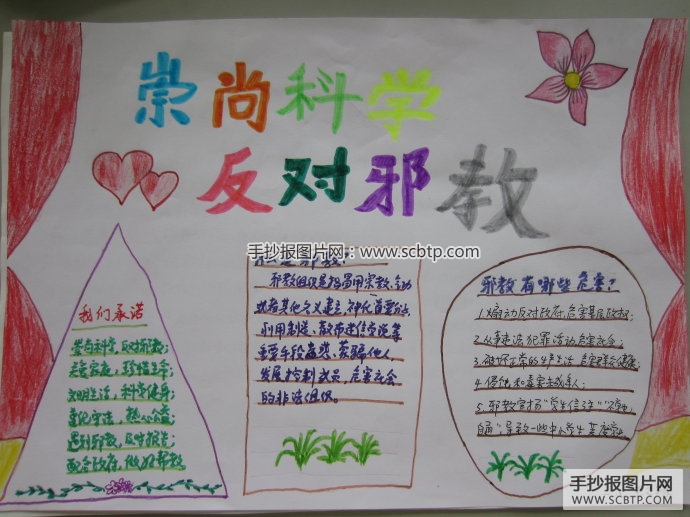 崇尚科学
反对邪教
手抄报图片网:www.scbtp.com
我们承诺
崇尚科学,反对邪教;
关爱家庭,珍惜生命;
文明生活,科学健身;
遵纪守法,热心公益;
遇到邪教,及时报告;
配合政府,做好帮教
什么是邪教?
邪教组织是指冒用宗教、气功
或者其他名义建立,神化首要分子,
利用制造、散布迷信邪说等
手段蛊惑、蒙骗他人,
发展控制成员,危害社会
的非法组织。
邪教有哪些危害?
1.煽动反对政府,危害基层政权;
2.从事违法犯罪活动危害社会;
3.破坏正常的生产生活,危害群众健康;
4.侵蚀和毒害未成年人;
5.邪教宣扬
导致一些中小学生
手抄报图片网
WWW.SCBTP.COM